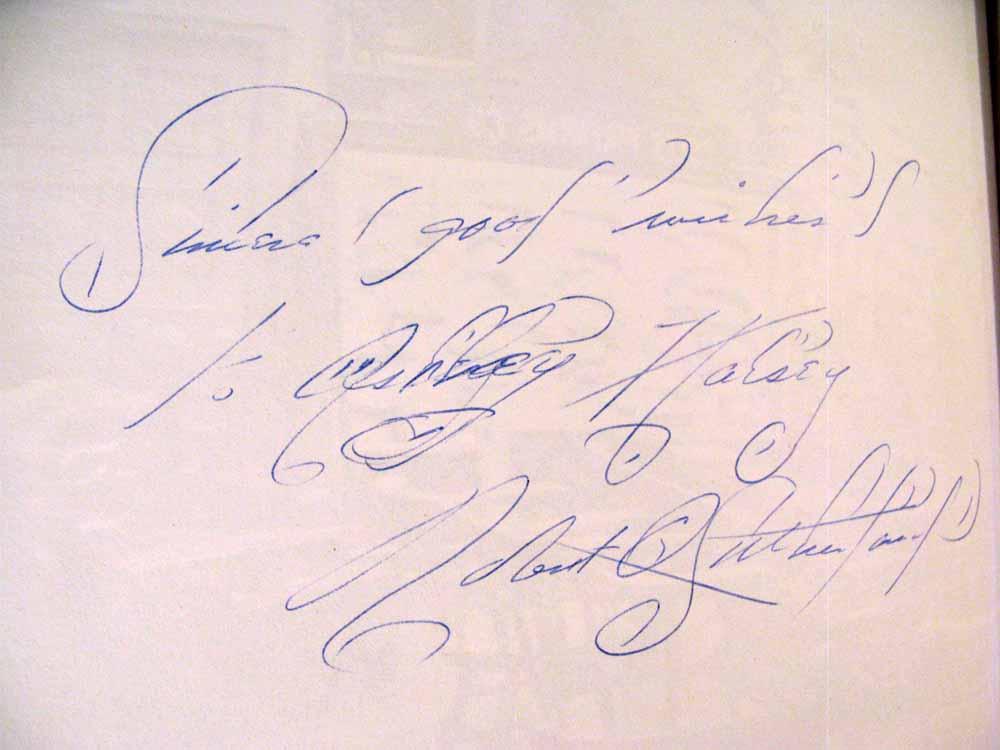 Sincere good wishes
to Ashley Halsey
Robert Sutherland